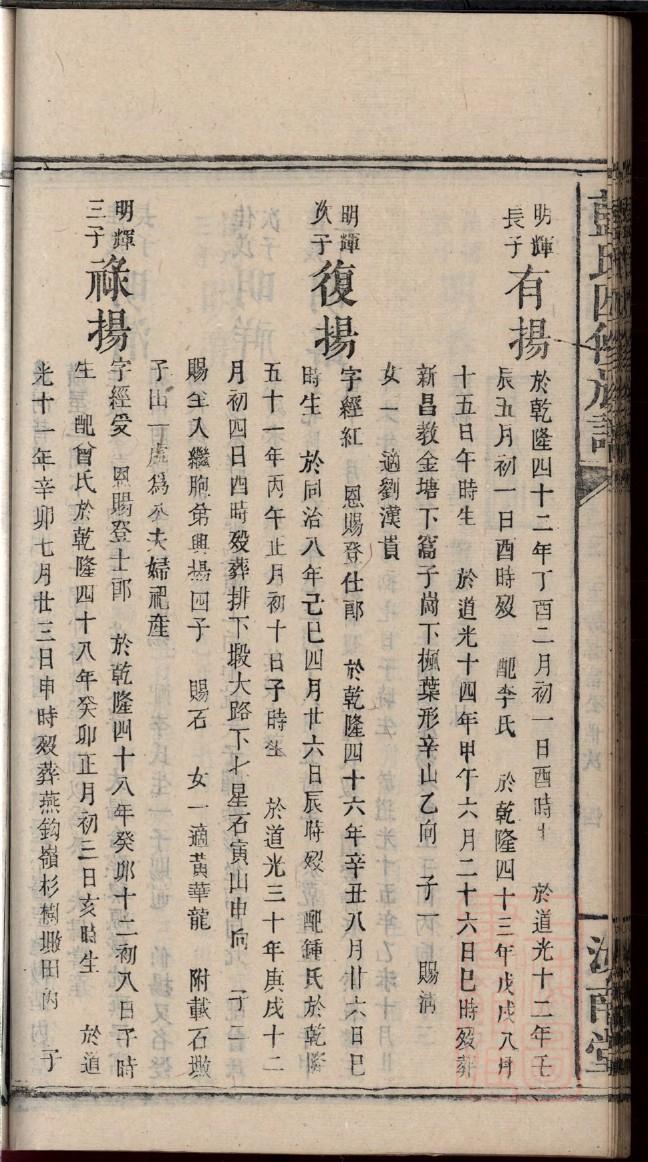 藍氏四修族譜
明輝
長子
有揚
於乾隆四十二年丁酉二月初一日酉時生 於道光十二年壬
辰五月初一日酉時歿 配李氏 於乾隆四十三年戊戌八月
十五日午時生 於道光十四年甲午六月二十六日巳時歿葬
新昌教金塘下窩子崗下楓葉形辛山乙向 子一 賜滿
女一 適劉漢貴
明輝
次子
復揚
字經紅 恩賜登仕郎 於乾隆四十六年辛丑八月廿六日巳
時生 於同治八年己巳四月廿六日辰時歿 配鍾氏於乾隆
五十一年丙午正月初十日子時生 於道光三十年庚戌十二
月初四日酉時歿葬排下塅大路下七星石寅山申向 子一
賜 入繼胞弟興揚四子 賜石 女一適黃華龍 附載石墩
子山一處為 夫婦祀產
明輝
三子
祿揚
字經受 恩賜登士郎 於乾隆四十八年癸卯十二初八日子時
生 配曾氏於乾隆四十八年癸卯正月初三日亥時生 於道
光十一年辛卯七月廿三日申時歿葬燕鈎嶺杉樹墩田內 子
汝南堂